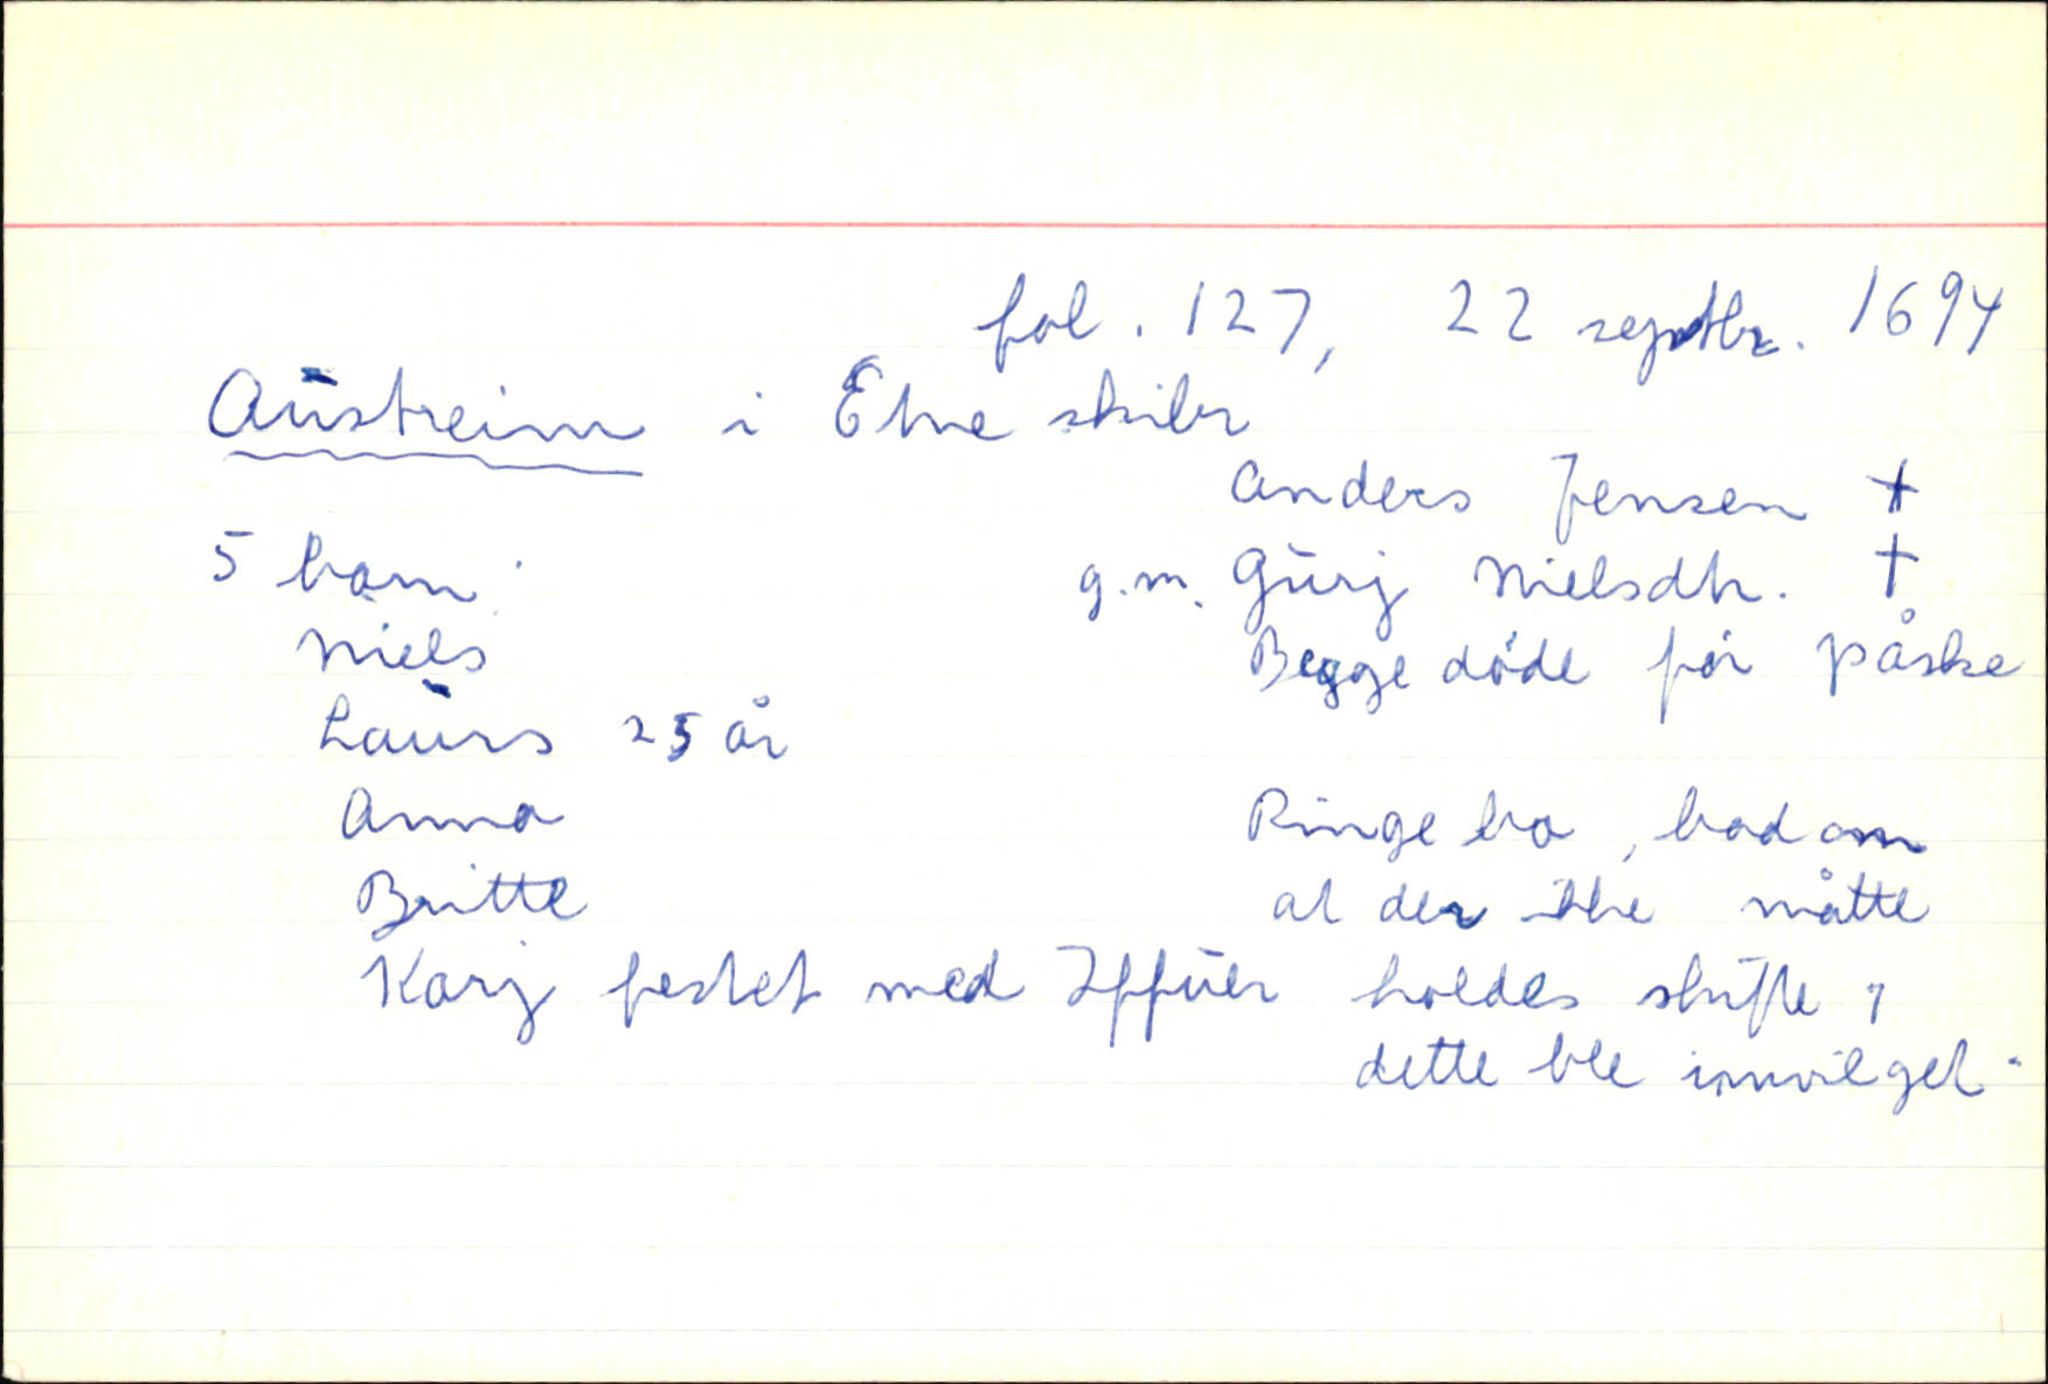 fol. 127, 22 septbr. 1694
Austreim i Etne skibr
Anders Jensen †
5 barn: g.m. Gurj Nielsdtr. †
Niels Begge døde før påske
Laurs 25 år
Anna Ringe bo, bad om
Britte at der ikke måtte
Karj festet med Iffuer holdes skifte,
dette ble innvilget.